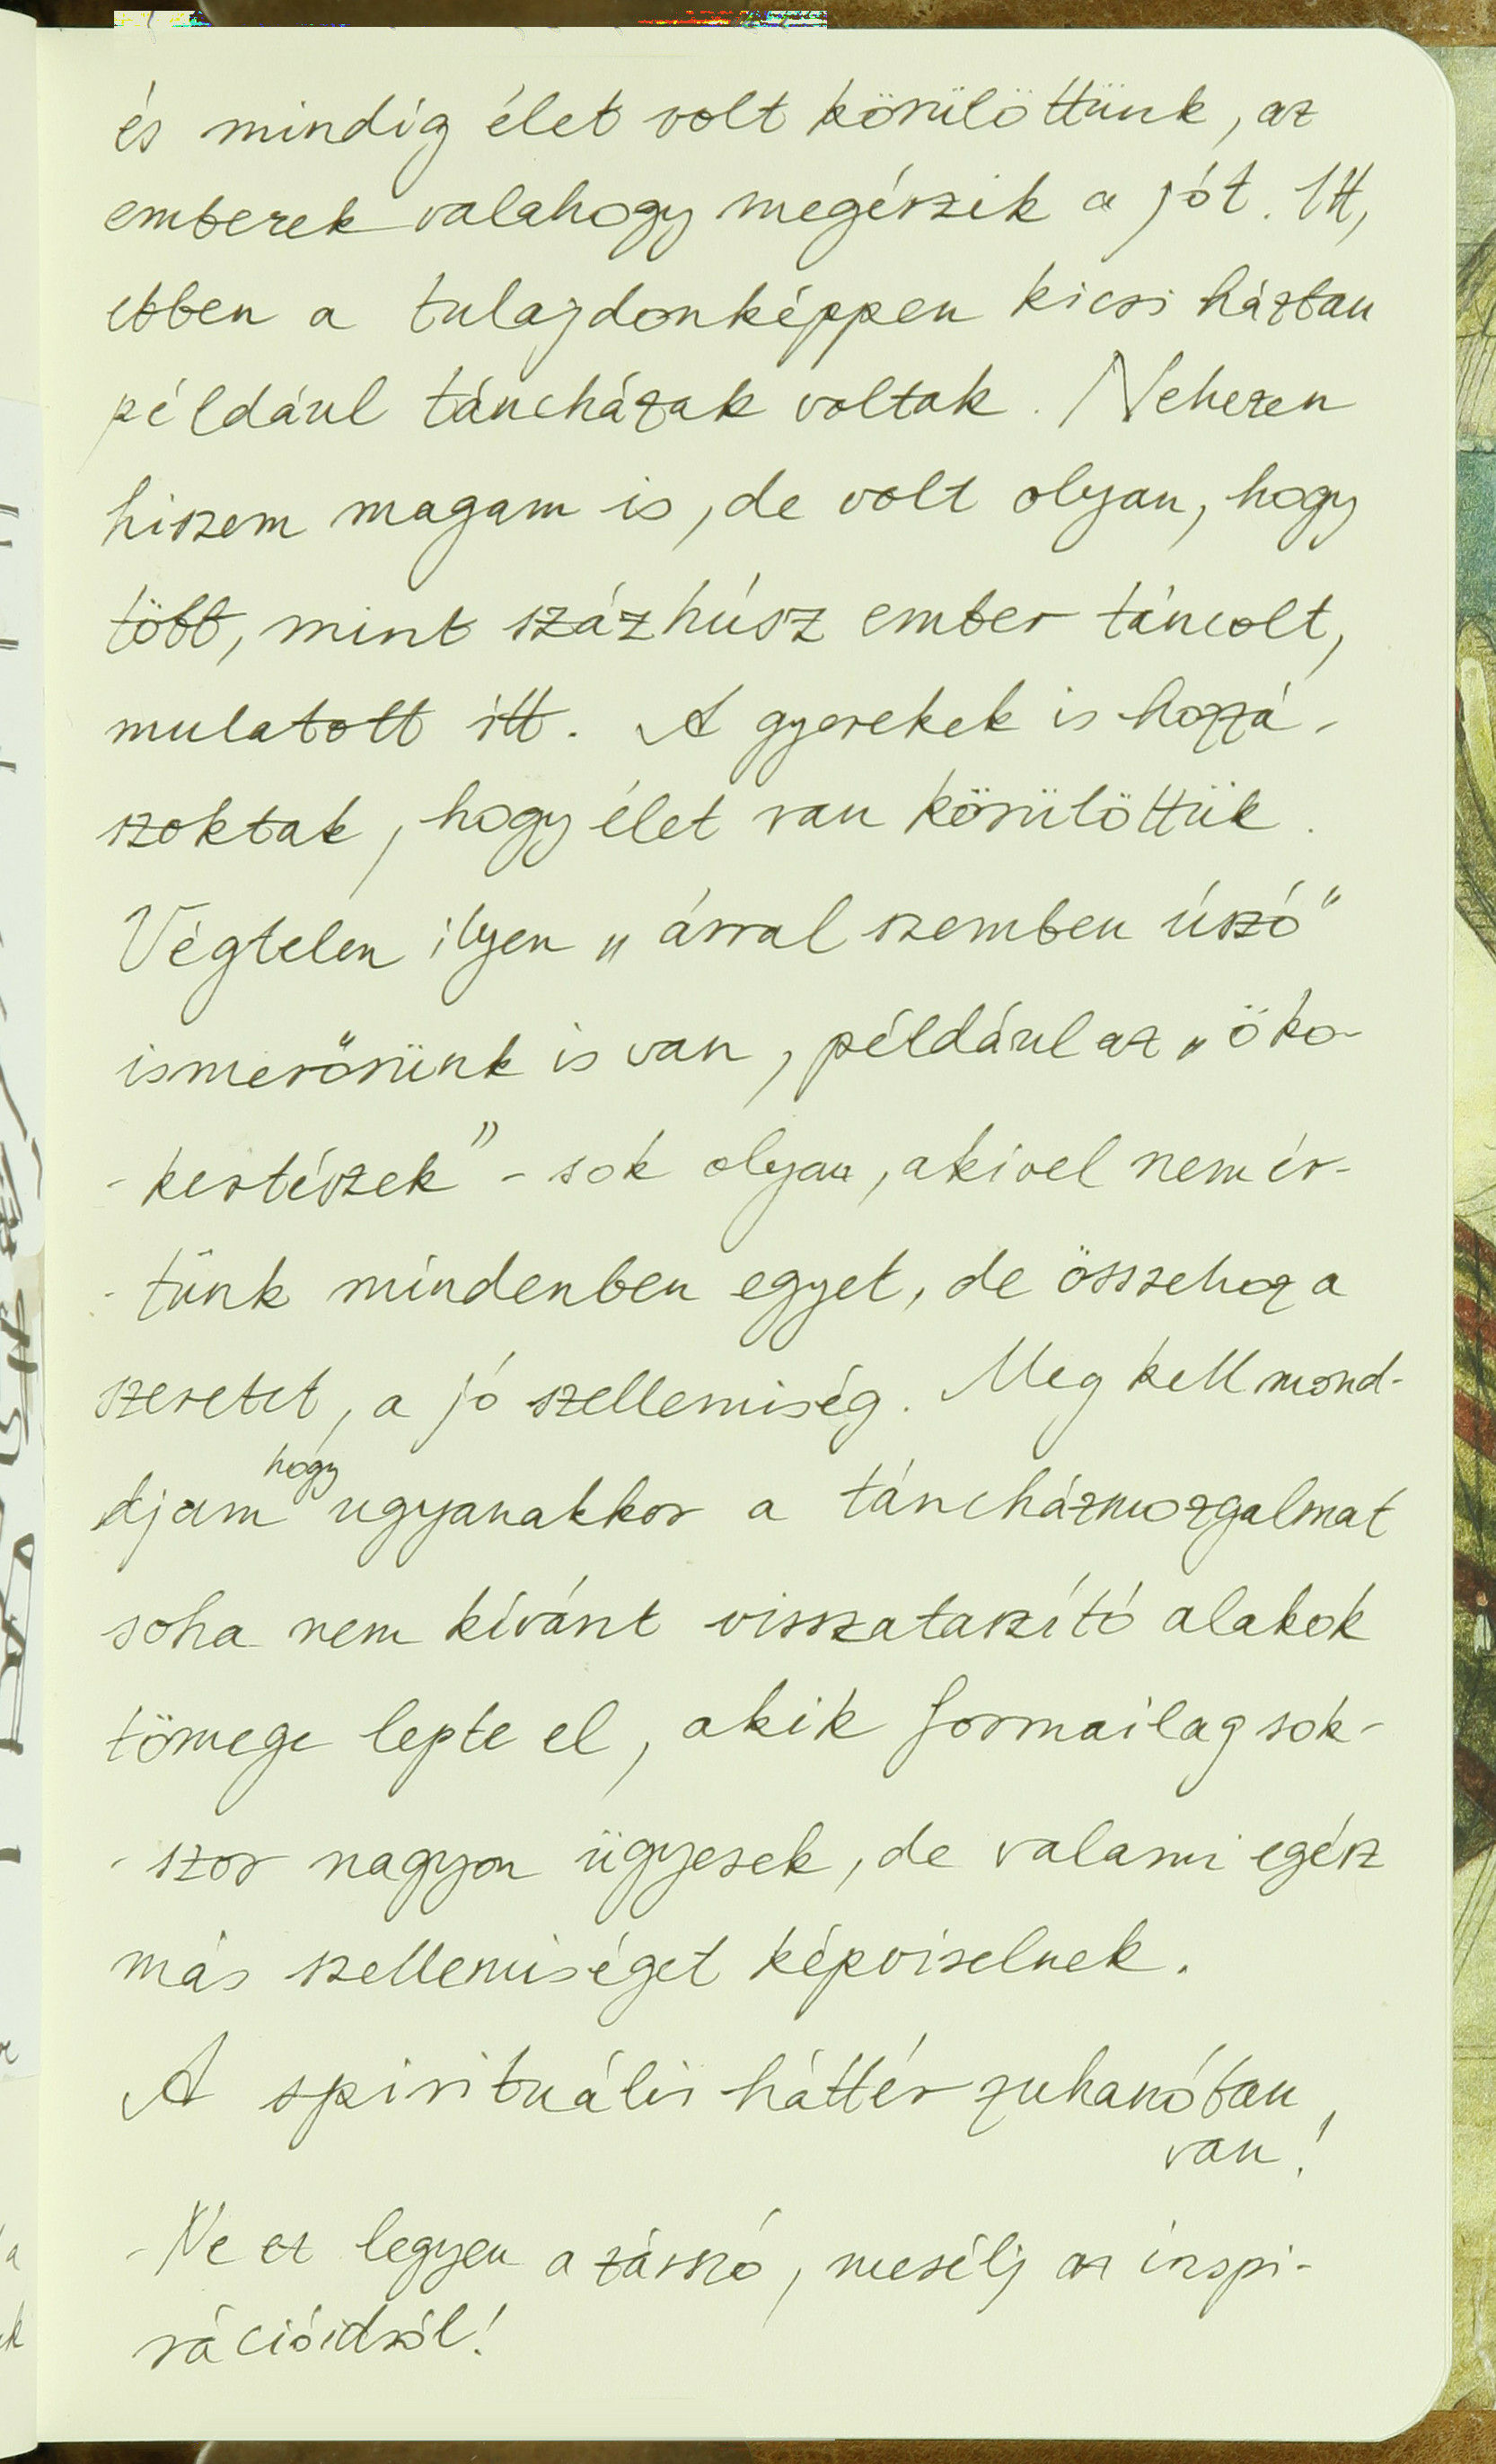 és mindig élet volt körülöttünk, az
emberek valahogy megérzik a jót. Itt,
ebben a tulajdonképpen kicsi házban
például táncházak voltak. Nehezen
hiszem magam is, de volt olyan, hogy
több, mint százhúsz ember táncolt,
mulatott itt. A gyerekek is hozzá-
szoktak, hogy élet van körülöttük.
Végtelen ilyen „árral szemben úszó"
ismerősünk is van, például az „öko-
-kertészek" - sok olyan, akivel nem ér-
-tünk mindenben egyet, de összehoz a
szeretet, a jó szellemiség. Meg kell mond-
djam hogy ugyanakkor a táncházmozgalmat
soha nem kívánt visszataszító alakok
tömege lepte el, akik formailag sok-
-szor nagyon ügyesek, de valami egész
más szellemiséget képviselnek.
A spirituális háttér zuhanóban
van!
- Ne ez legyen a zárszó, mesélj az inspi-
rációidról!